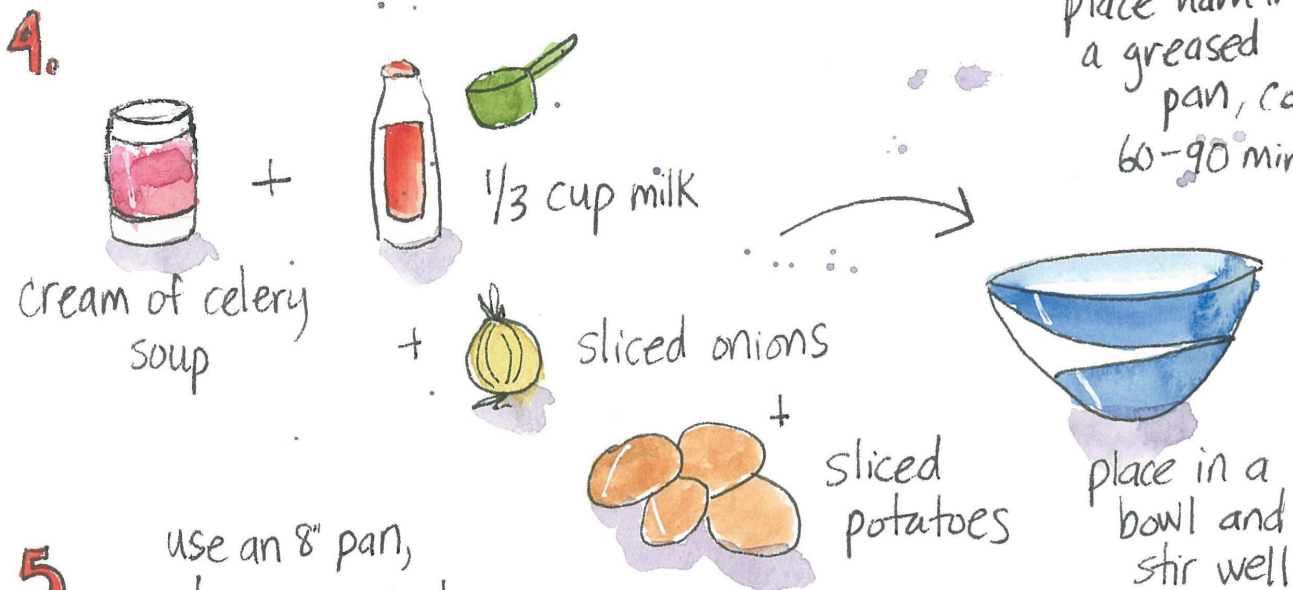 place ham in
a greased
pan, co
60-90 min
4.
1/3 cup milk
+
cream of celery
soup
+
sliced onions
+
sliced
potatoes
place in a
bowl and
stir well
5
use an 8" pan,